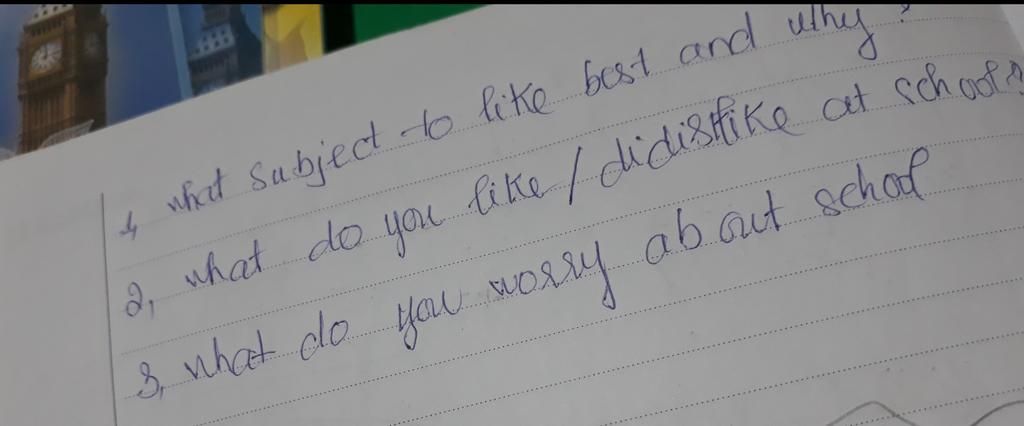 1, what subject to like best and why?
2, what do you like / didislike at school?
3, what do you worry about school